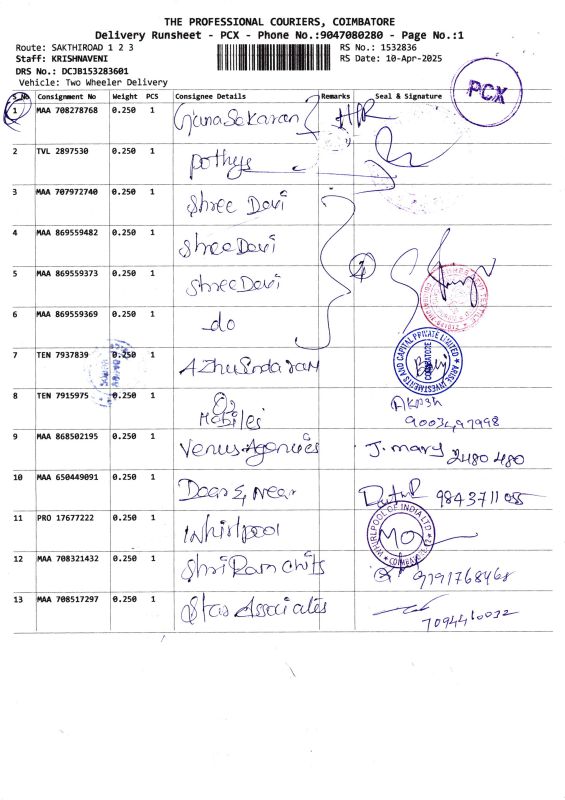 THE PROFESSIONAL COURIERS, COIMBATORE
Delivery Runsheet - PCX - Phone No.:9047080280 - Page No.:1
Route: SAKTHIROAD 1 2 3 RS No.: 1532836
Staff: KRISHNAVENI RS Date: 10-Apr-2025
DRS No.: DCJB153283601
Vehicle: Two Wheeler Delivery
PCX
S No Consignment No Weight PCS Consignee Details Remarks Seal & Signature
1 MAA 708278768 0.250 1 GunaSekaran
2 TVL 2897530 0.250 1 pothys
3 MAA 707972740 0.250 1 Shree Devi
4 MAA 869559482 0.250 1 Shree Devi
5 MAA 869559373 0.250 1 Shree Devi
6 MAA 869559369 0.250 1 do
7 TEN 7937839 0.250 1 AZhusndaram
8 TEN 7915975 0.250 1 Mobiles
9 MAA 868502195 0.250 1 Venus Agencies J. mary 2480 480
10 MAA 650449091 0.250 1 Dear & Near 9843711055
11 PRO 17677222 0.250 1 Whirlpool
WHIRLPOOL OF INDIA LTD
12 MAA 708321432 0.250 1 Shri Ram Chits 9791768468
13 MAA 708517297 0.250 1 Star Associates 7094410032